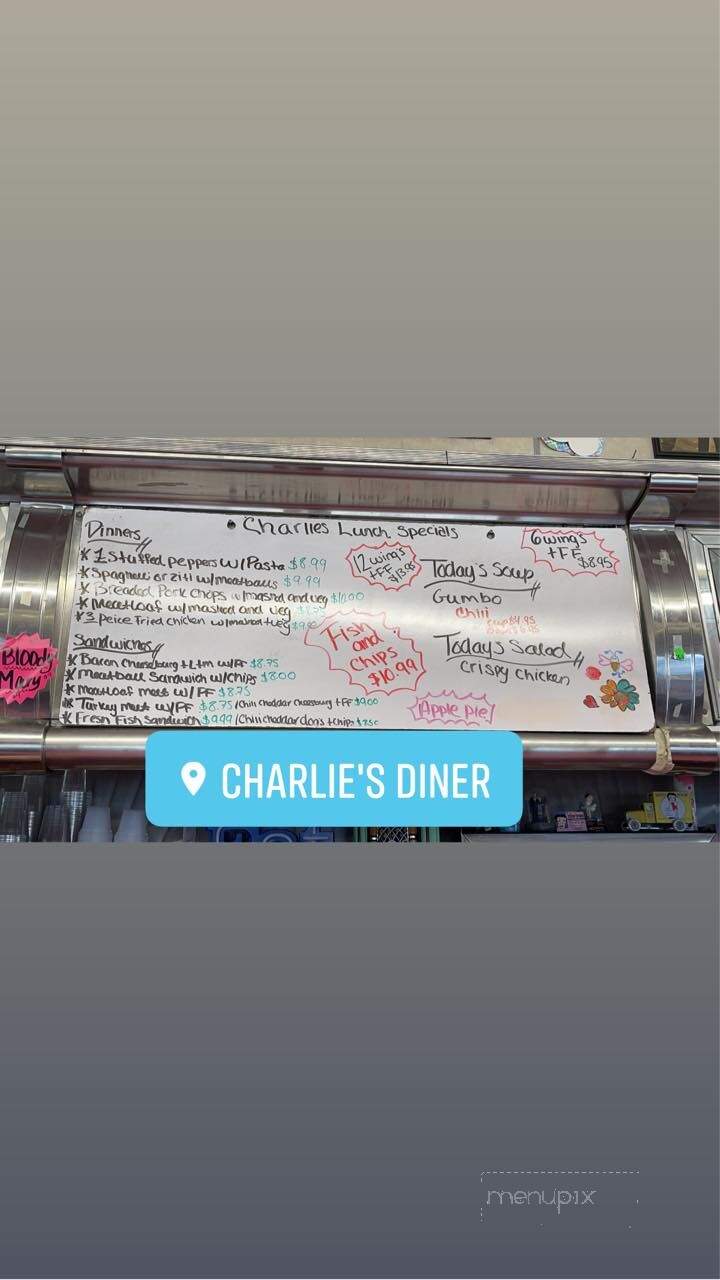 Charlies Lunch Specials
Dinners
* 1 Stuffed peppers w/Pasta $8.99
* Spaghetti or ziti w/meatballs $9.99
* Breaded Pork Chops w/mashed and veg $12.00
* Meatloaf w/mashed and veg
* 3 peice Fried chicken w/mashed + veg
Sandwiches
* Bacon Cheeseburg + L+m w/FF $8.75
* Meatball Sandwich w/chips $8.00
* Meatloaf melt w/ FF $8.75
* Turkey melt w/FF $8.75 / Chili Cheddar Cheeseburg + FF $9.00
* Fresh Fish Sandwich $9.99 / Chili cheddar dogs + chips
12 wings
+FF
$13.95
Fish
and
Chips
$10.99
6 wings
+ FF
$8.95
Today's Soup
Gumbo
Chili
Today's Salad
crispy chicken
Apple pie!
Bloody
Mary
CHARLIE'S DINER
menupix